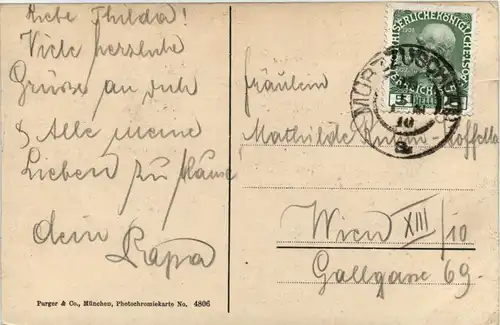 Liebe Thilda!
Viele herzliche
Grüsse an dich
& Alle meine
Lieben zu Hause
dein Papa
Fräulein
Mathilde
Wien XIII/10
Gallgasse 69.
MÜRZZUSCHLAG
10
Purger & Co., München, Photochromiekarte No. 4806